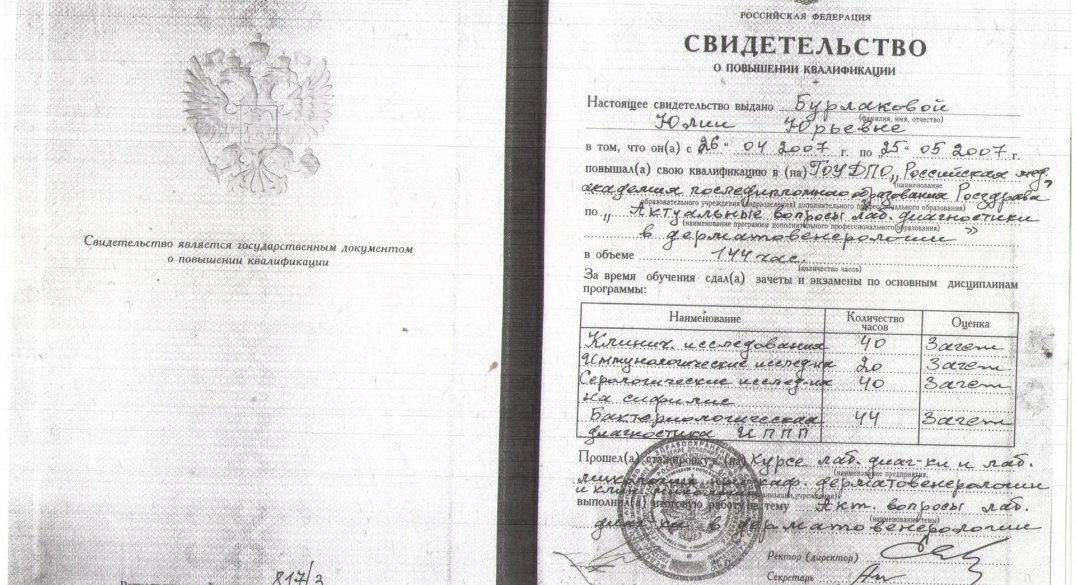 Свидетельство является государственным документом
о повышении квалификации
817/3
РОССИЙСКАЯ ФЕДЕРАЦИЯ
СВИДЕТЕЛЬСТВО
О ПОВЫШЕНИИ КВАЛИФИКАЦИИ
Настоящее свидетельство выдано Бурлаковой
(фамилия, имя, отчество)
Юлии Юрьевне
в том, что он(а) с „26“ 04 2007 г. по „25“ 05 2007 г.
повышал(а) свою квалификацию в (на) ГОУДПО „Российская мед.
(наименование
академия последипломного образования Росздрава"
образовательного учреждения (подразделения) дополнительного профессионального образования)
по „Актуальные вопросы лаб. диагностики
(наименование программы дополнительного профессионального образования)
в дерматовенерологии"
в объеме 144 час.
(количество часов)
За время обучения сдал(а) зачеты и экзамены по основным дисциплинам
программы:
Наименование Количество часов Оценка
Клинич. исследования 40 Зачет
Иммунологические исслед-ия 20 Зачет
Серологические исслед-ия 40 Зачет
на сифилис
Бактериологическая 44 Зачет
диагностика ИППП
Прошел(а) стажировку в (на) курсе лаб. диаг-ки и лаб.
(наименование предприятия,
микологии при каф. дерматовенерологии
и клин. микологии
организации, учреждения)
выполнил(а) итоговую работу на тему Акт. вопросы лаб.
(наименование темы)
диаг-ки в дерматовенерологии
М.П.
Ректор (директор)
Секретарь